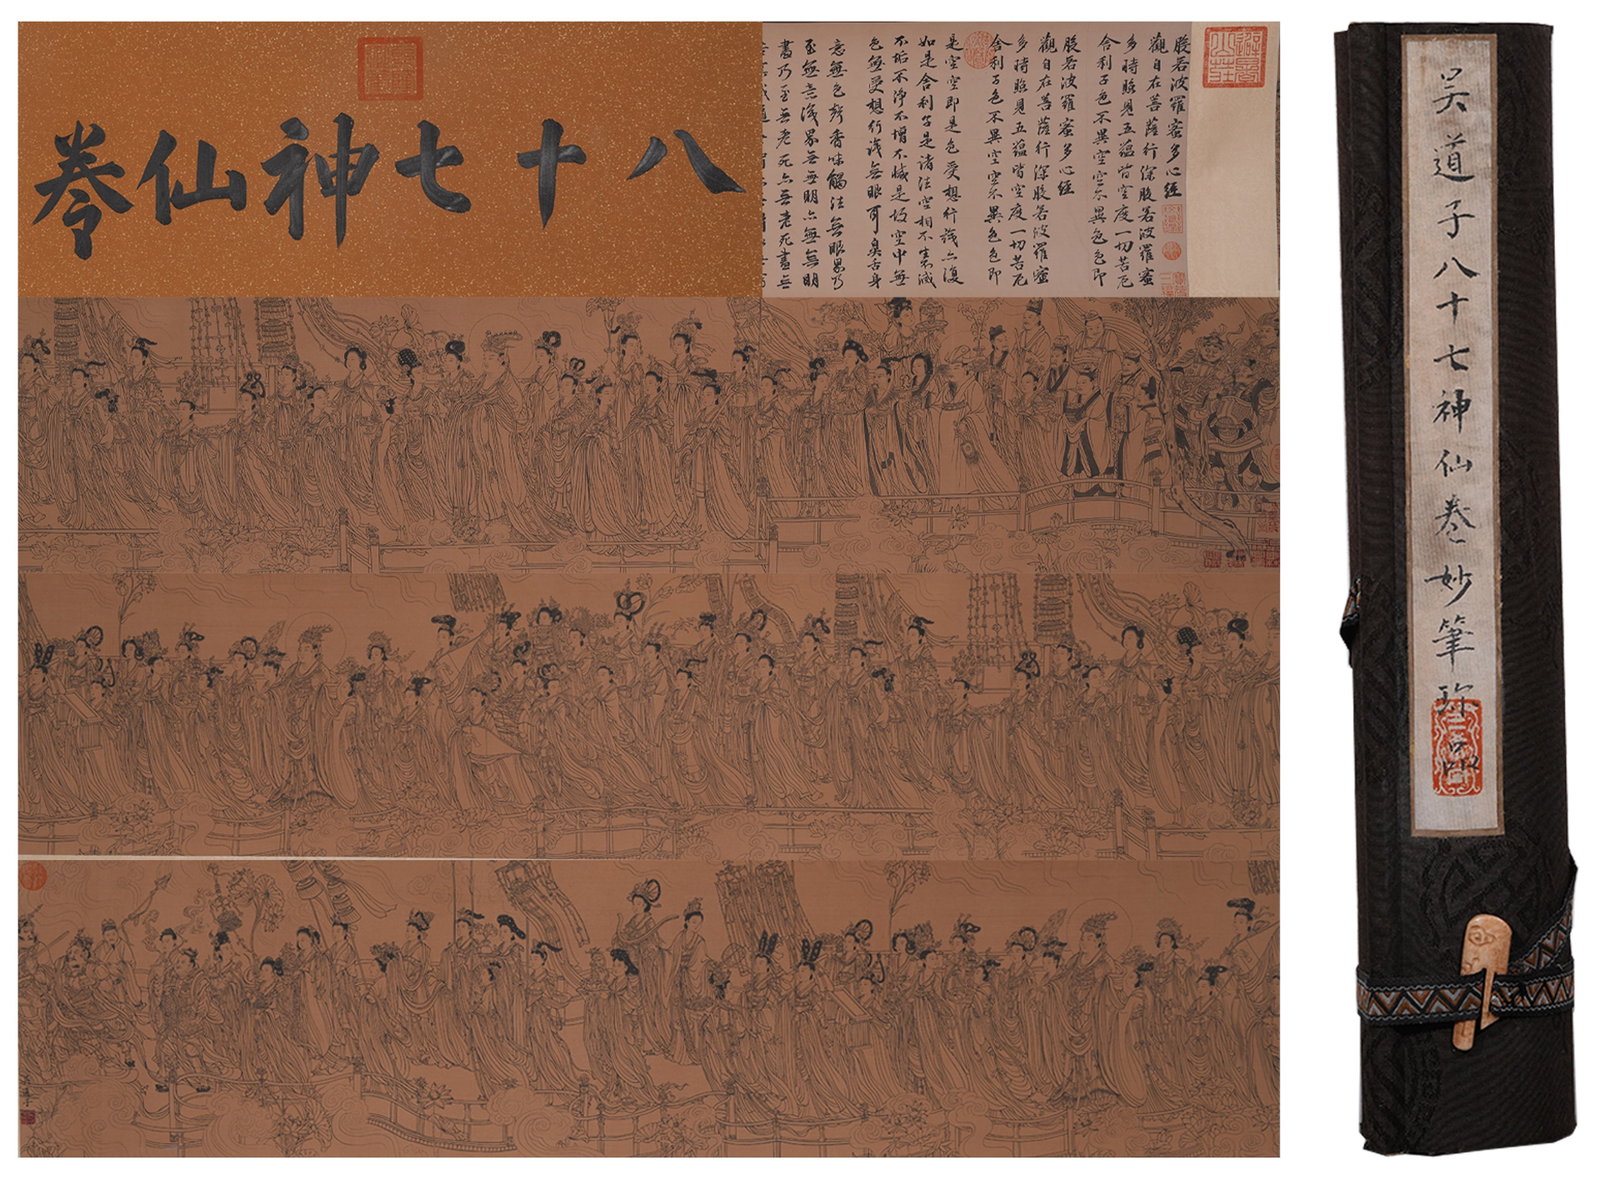 避暑山莊
般若波羅蜜多心經
觀自在菩薩行深般若波羅蜜
多時照見五蘊皆空度一切苦厄
舍利子色不異空空不異色色即
般若波羅蜜多心經
觀自在菩薩行深般若波羅蜜
多時照見五蘊皆空度一切苦厄
舍利子色不異空空不異色色即
是空空即是色受想行識亦復
如是舍利子是諸法空相不生滅
不垢不淨不增不減是故空中無
色無受想行識無眼耳鼻舌身
意無色聲香味觸法無眼界乃
至無意識界無無明亦無無明
盡乃至無老死亦無老死盡無
八十七神仙卷
吳道子八十七神仙卷妙筆珍品